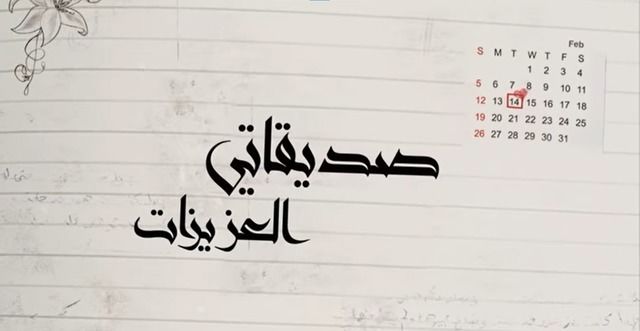 صديقاتي
العزيزات
Feb
S M T W T F S
1 2 3 4
5 6 7 8 9 10 11
12 13 14 15 16 17 18
19 20 21 22 23 24 25
26 27 28 29 30 31